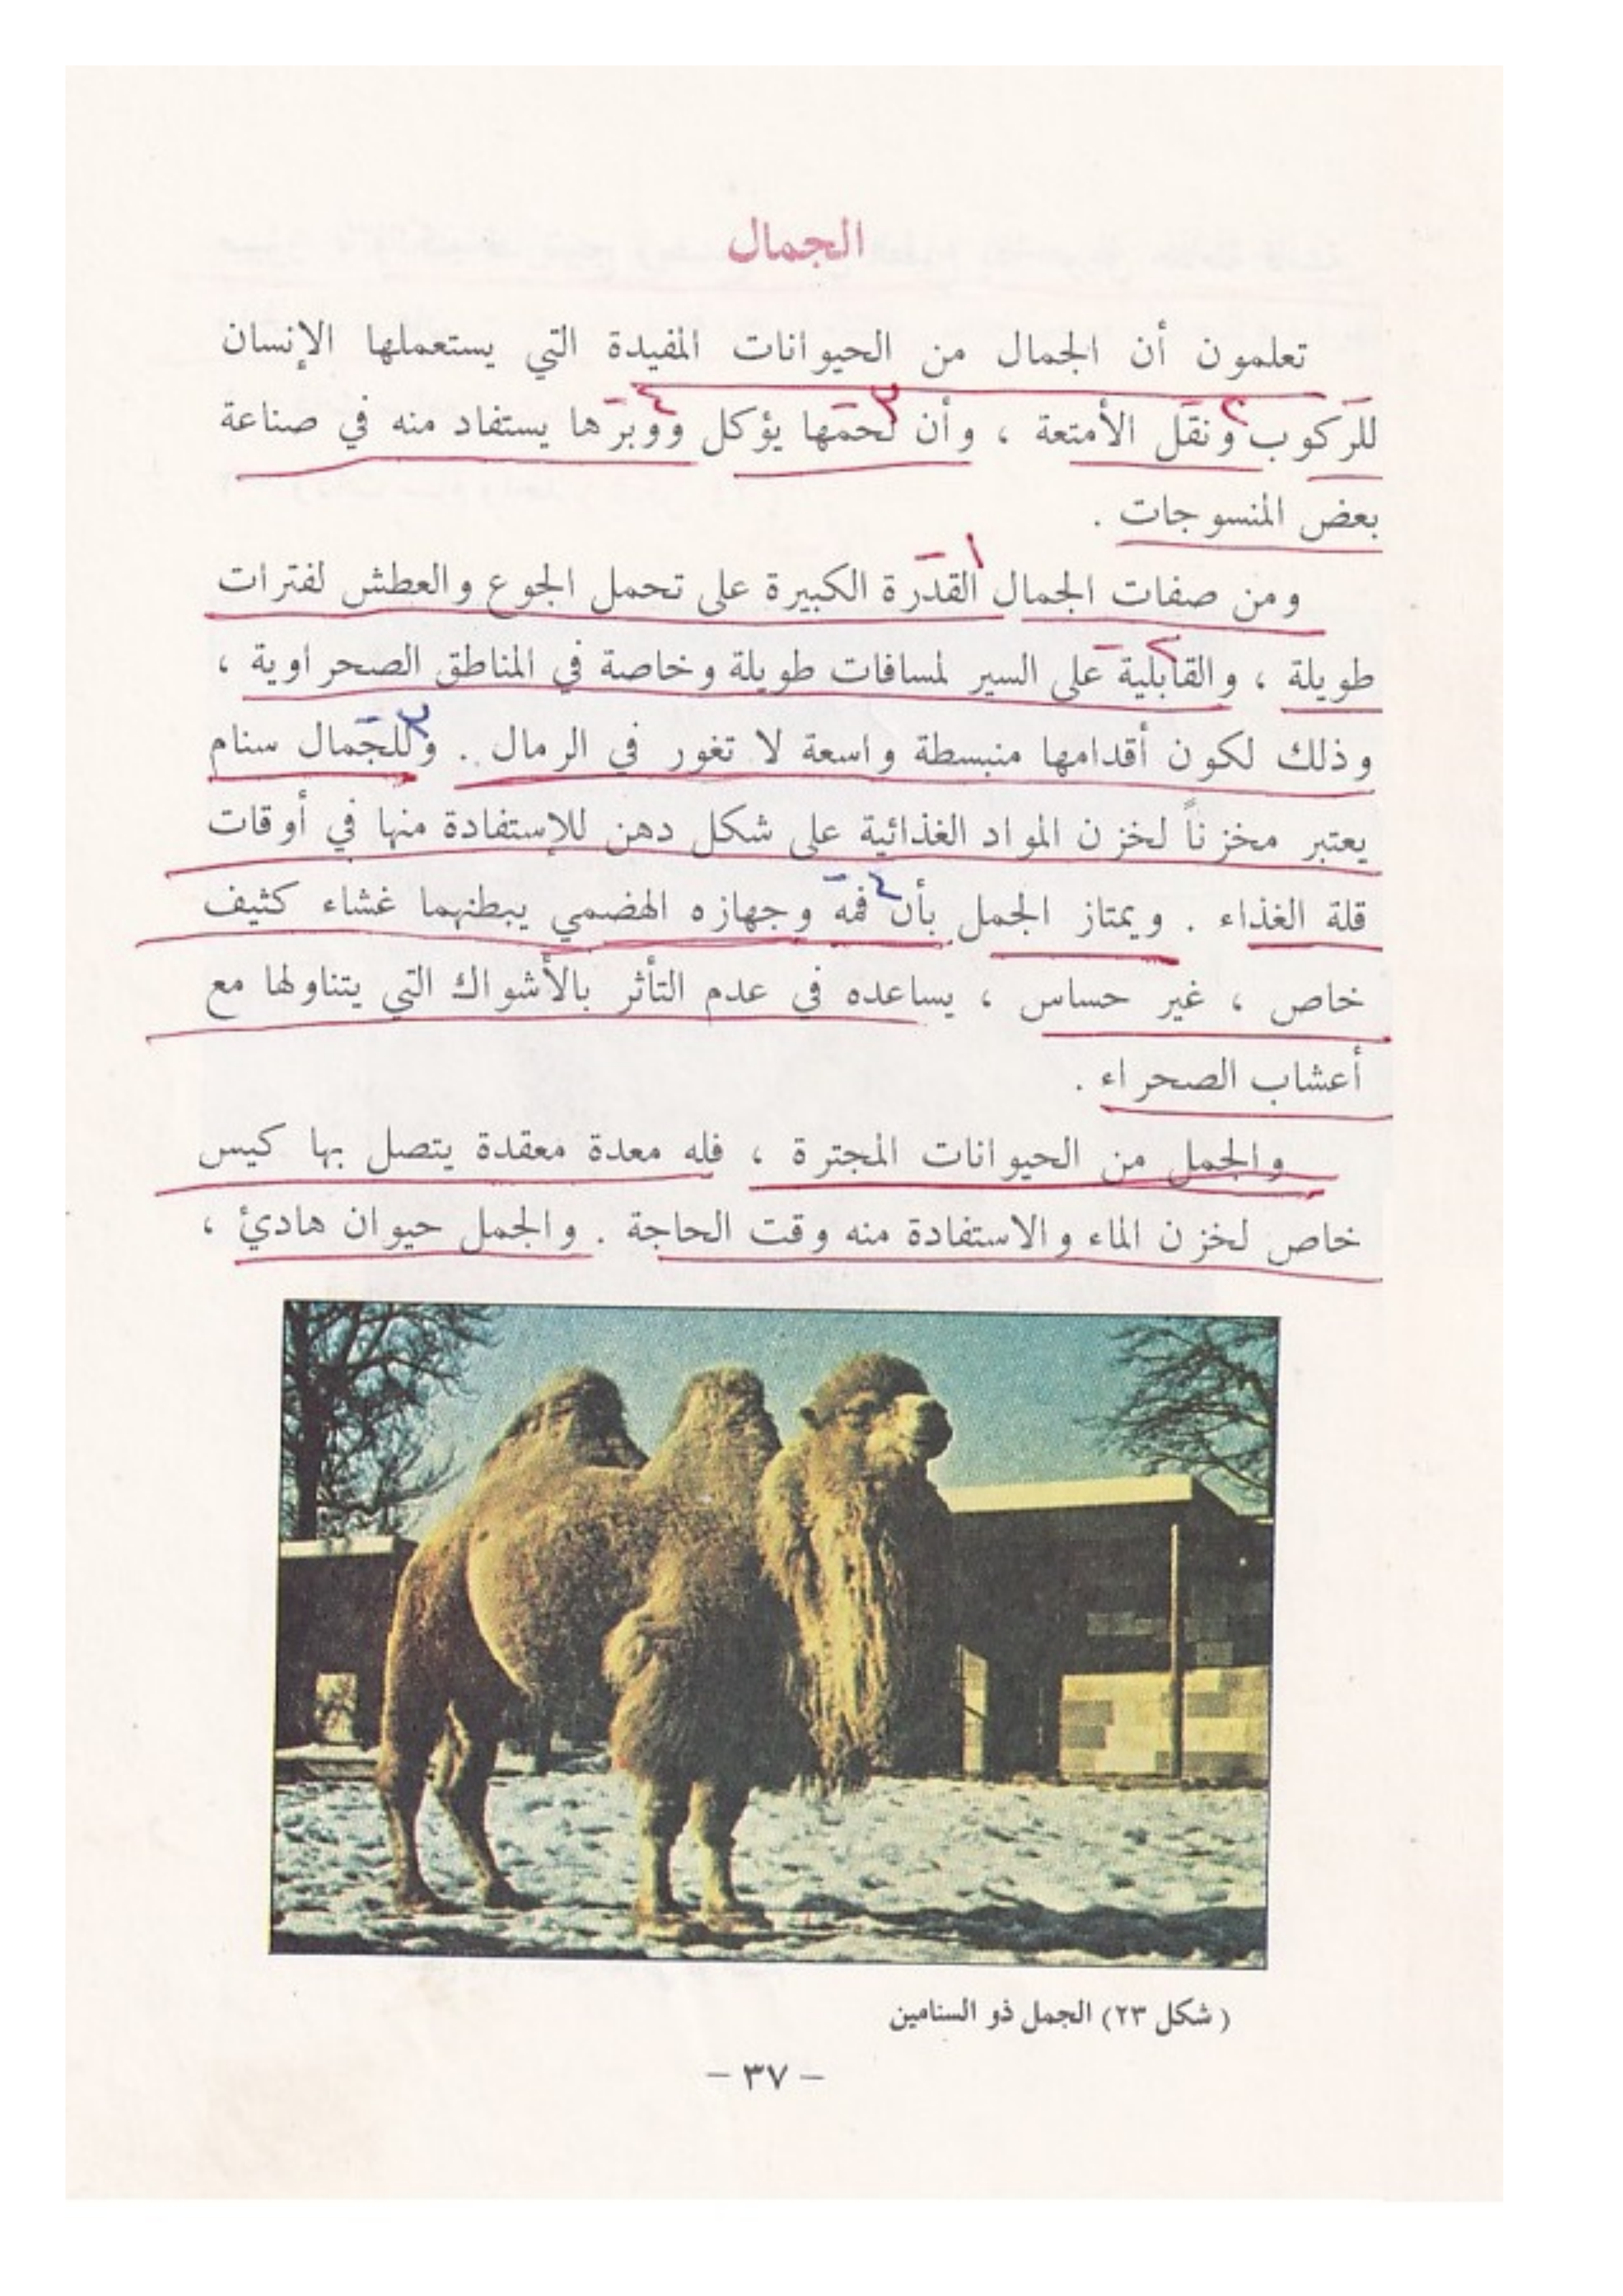 الجمال
تعلمون أن الجمال من الحيوانات المفيدة التي يستعملها الإنسان
للركوب ونقل الأمتعة ، وأن لحمها يؤكل ووبرها يستفاد منه في صناعة
بعض المنسوجات .
ومن صفات الجمال القدرة الكبيرة على تحمل الجوع والعطش لفترات
طويلة ، والقابلية على السير لمسافات طويلة وخاصة في المناطق الصحراوية ،
وذلك لكون أقدامها منبسطة واسعة لا تغور في الرمال . وللجمال سنام
يعتبر مخزناً لخزن المواد الغذائية على شكل دهن للإستفادة منها في أوقات
قلة الغذاء . ويمتاز الجمل بأن فمه وجهازه الهضمي يبطنهما غشاء كثيف
خاص ، غير حساس ، يساعده في عدم التأثر بالأشواك التي يتناولها مع
أعشاب الصحراء .
والجمل من الحيوانات المجترة ، فله معدة معقدة يتصل بها كيس
خاص لخزن الماء والاستفادة منه وقت الحاجة . والجمل حيوان هادئ ،
( شكل ٢٣) الجمل ذو السنامين
– ٣٧ –